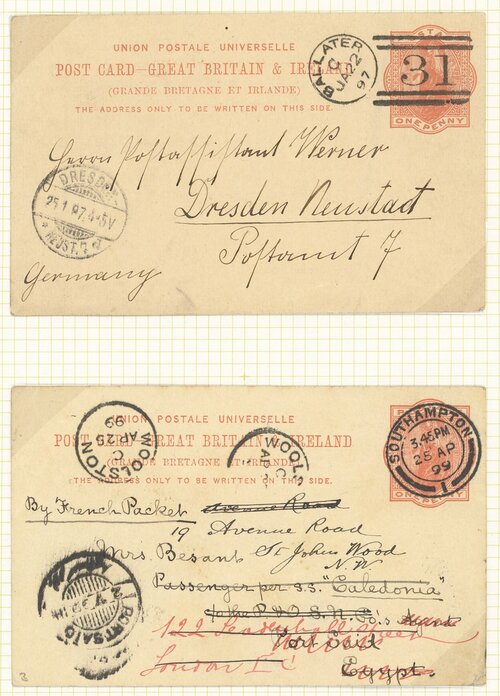 UNION POSTALE UNIVERSELLE
POST CARD—GREAT BRITAIN & IRELAND
(GRANDE BRETAGNE ET IRLANDE)
THE ADDRESS ONLY TO BE WRITTEN ON THIS SIDE.
BALLATER
C
JA 22
97
31
ONE PENNY
Herrn Postassistant Werner
Dresden Neustadt
Postamt 7
Germany
DRESDEN
25.1.97.4-5V
NEUST. 7
WOOLSTON
C
AP 25
99
WOOLS
C
AP
UNION POSTALE UNIVERSELLE
POST CARD—GREAT BRITAIN & IRELAND
(GRANDE BRETAGNE ET IRLANDE)
THE ADDRESS ONLY TO BE WRITTEN ON THIS SIDE.
SOUTHAMPTON
3.45 PM
25 AP
99
1
ONE PENNY
By French Packet
Avenue Road
19 Avenue Road
Mrs. Besant St Johns Wood
N.W
Passenger per S.S. "Caledonia"
c/o the P & O S. N. Co.'s
122 Leadenhall Street
Port Said
London E
Egypt.
PORT SAID
3